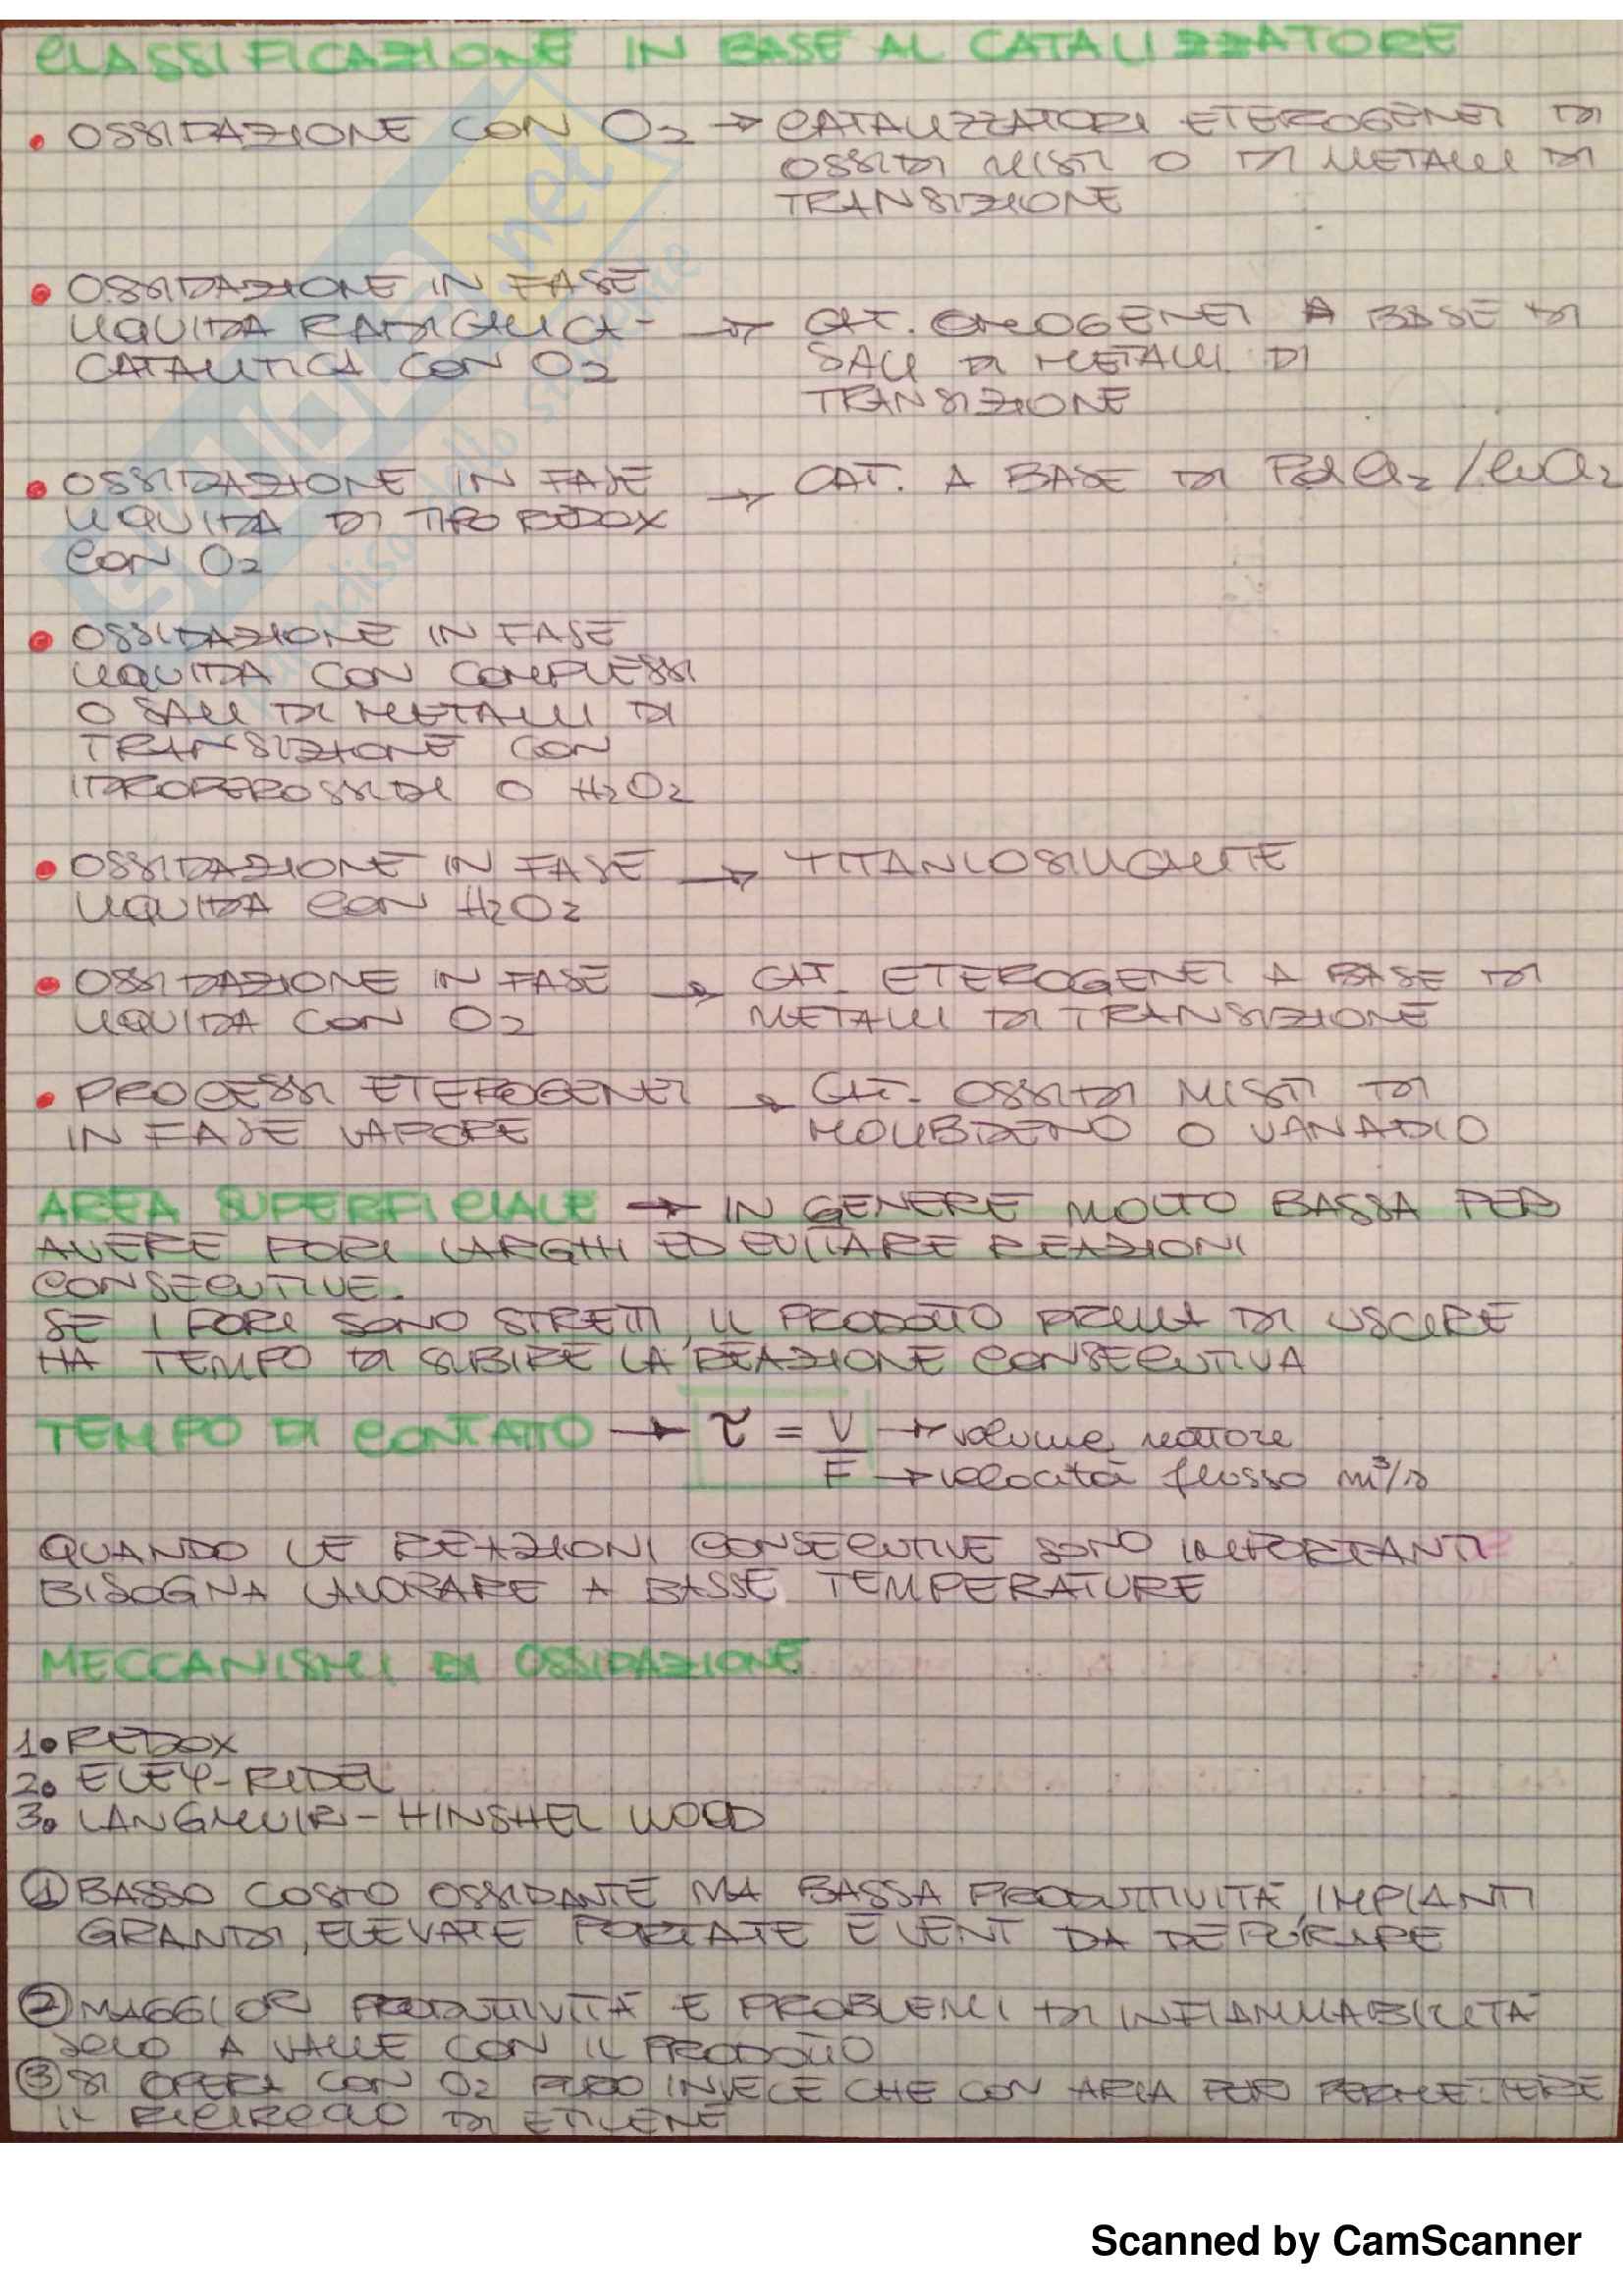 CLASSIFICAZIONE IN BASE AL CATALIZZATORE
• OSSIDAZIONE CON O2 → CATALIZZATORI ETEROGENEI DI
OSSIDI MISTI O DI METALLI DI
TRANSIZIONE
• OSSIDAZIONE IN FASE
LIQUIDA RADICALICA- → CAT. OMOGENEI A BASE DI
CATALITICA CON O2 SALI DI METALLI DI
TRANSIZIONE
• OSSIDAZIONE IN FASE → CAT. A BASE DI PdCl2 / CuCl2
LIQUIDA DI TIPO REDOX
CON O2
• OSSIDAZIONE IN FASE
LIQUIDA CON COMPLESSI
O SALI DI METALLI DI
TRANSIZIONE CON
IDROPEROSSIDI O H2O2
• OSSIDAZIONE IN FASE → TITANIOSILICALITE
LIQUIDA CON H2O2
• OSSIDAZIONE IN FASE → CAT. ETEROGENEI A BASE DI
LIQUIDA CON O2 METALLI DI TRANSIZIONE
• PROCESSI ETEROGENEI → CAT. OSSIDI MISTI DI
IN FASE VAPORE MOLIBDENO O VANADIO
AREA SUPERFICIALE → IN GENERE MOLTO BASSA PER
AVERE PORI LARGHI ED EVITARE REAZIONI
CONSECUTIVE.
SE I PORI SONO STRETTI, IL PRODOTTO PRIMA DI USCIRE
HA TEMPO DI SUBIRE LA REAZIONE CONSECUTIVA
TEMPO DI CONTATTO → τ = V → volume reattore
F → velocità flusso m³/s
QUANDO LE REAZIONI CONSECUTIVE SONO IMPORTANTI
BISOGNA LAVORARE A BASSE TEMPERATURE
MECCANISMI DI OSSIDAZIONE
1. REDOX
2. ELEY-RIDEL
3. LANGMUIR-HINSHEL WOOD
① BASSO COSTO OSSIDANTE MA BASSA PRODUTTIVITÀ, IMPIANTI
GRANDI, ELEVATE PORTATE E VENT DA DEPURARE
② MAGGIOR PRODUTTIVITÀ E PROBLEMI DI INFIAMMABILITÀ
SOLO A VALLE CON IL PRODOTTO
③ SI OPERA CON O2 PURO INVECE CHE CON ARIA PER PERMETTERE
IL RICIRCOLO DI ETILENE
Scanned by CamScanner